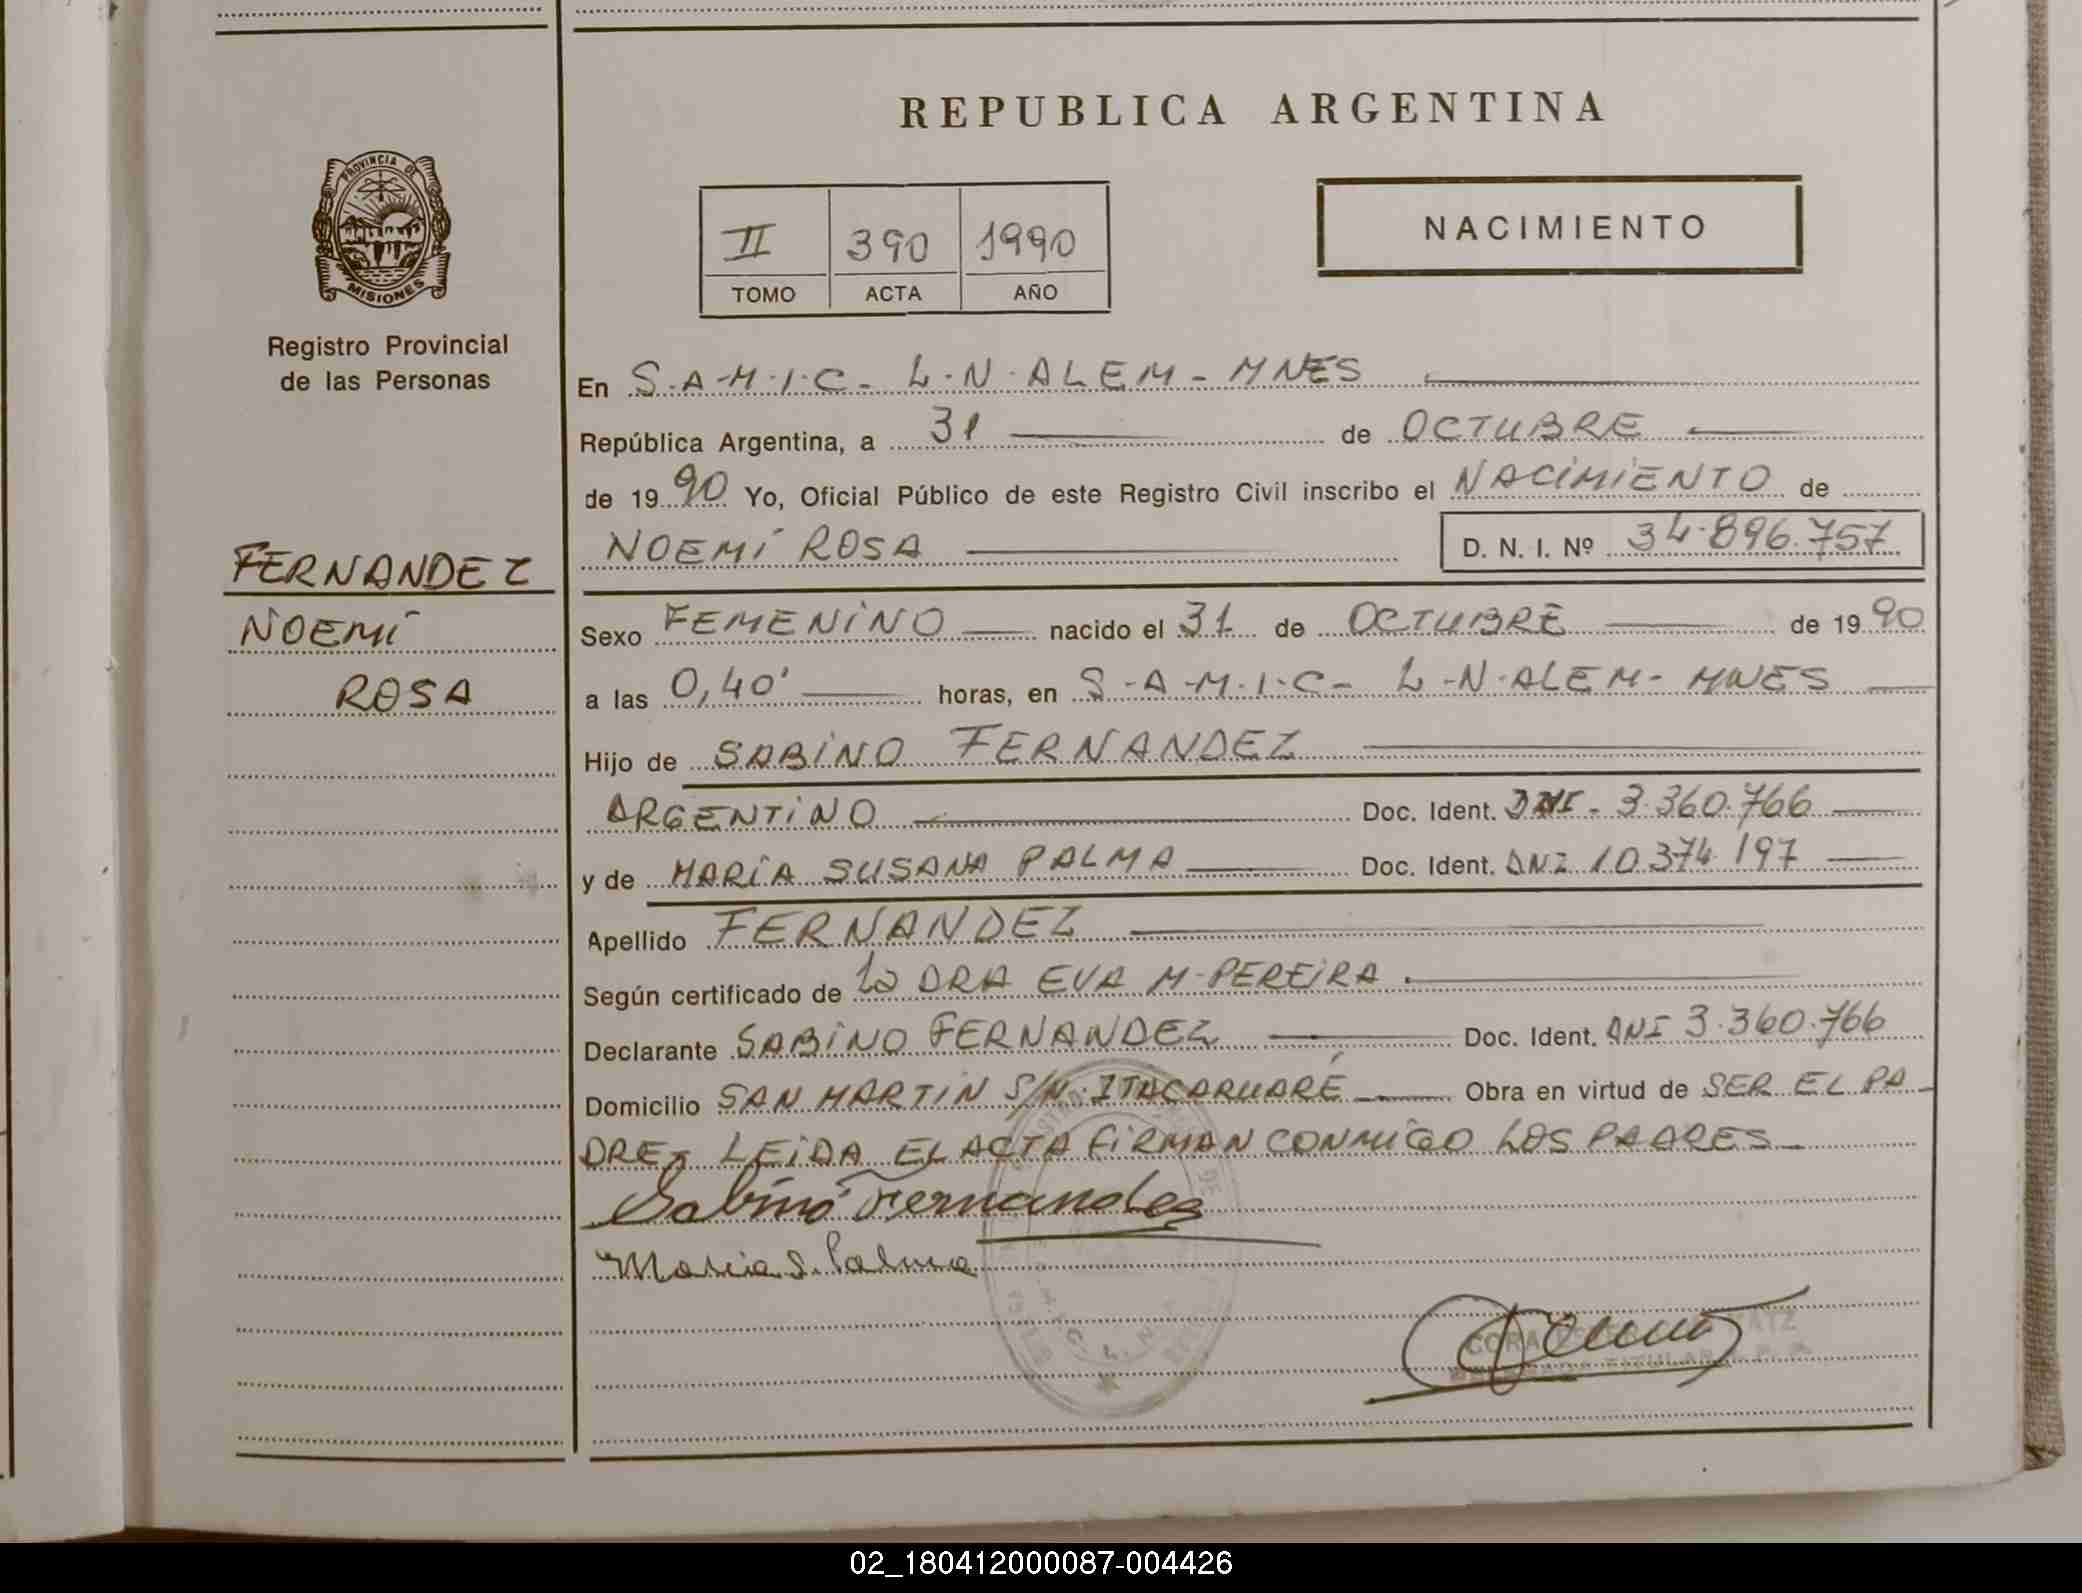 REPUBLICA ARGENTINA
PROVINCIA DE
MISIONES
Registro Provincial
de las Personas
II 390 1990
TOMO ACTA AÑO
NACIMIENTO
FERNANDEZ
NOEMÍ
ROSA
En S.A.M.I.C. L.N. ALEM - MNES
República Argentina, a 31 de OCTUBRE
de 1990 Yo, Oficial Público de este Registro Civil inscribo el NACIMIENTO de
NOEMÍ ROSA D. N. I. Nº 34.896.757
Sexo FEMENINO nacido el 31 de OCTUBRE de 1990
a las 0,40' horas, en S.A.M.I.C. - L.N. ALEM - MNES
Hijo de SABINO FERNANDEZ
ARGENTINO Doc. Ident. DNI - 3.360.766
y de MARÍA SUSANA PALMA Doc. Ident. DNI 10.374.197
Apellido FERNANDEZ
Según certificado de la DRA EVA M. PEREIRA
Declarante SABINO FERNANDEZ Doc. Ident. DNI 3.360.766
Domicilio SAN MARTIN S/N. ITACARUARÉ Obra en virtud de SER EL PA-
DRE - LEIDA EL ACTA FIRMAN CONMIGO LOS PADRES
Sabino Fernandez
Maria S. Palma
CORA
TITULAR
02_180412000087-004426